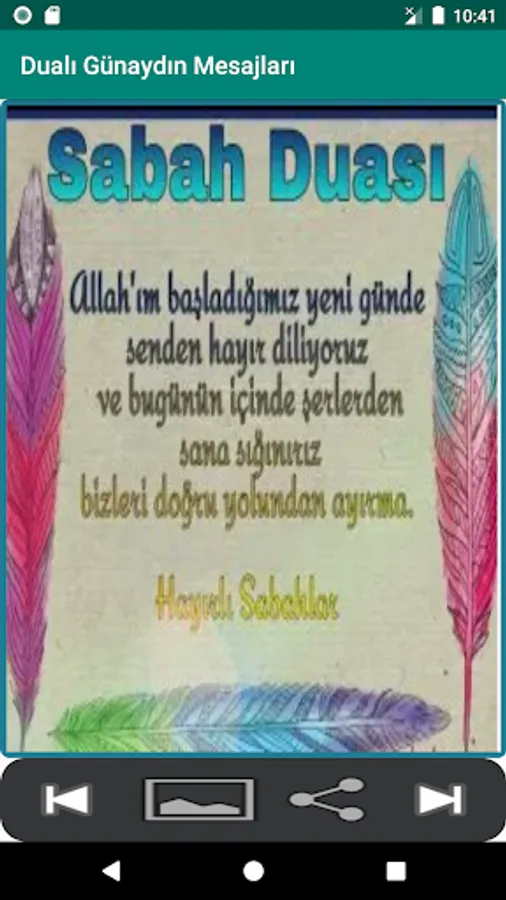 10:41
Dualı Günaydın Mesajları
Sabah Duası
Allah'ım başladığımız yeni günde
senden hayır diliyoruz
ve bugünün içinde şerlerden
sana sığınırız
bizleri doğru yolundan ayırma.
Hayırlı Sabahlar